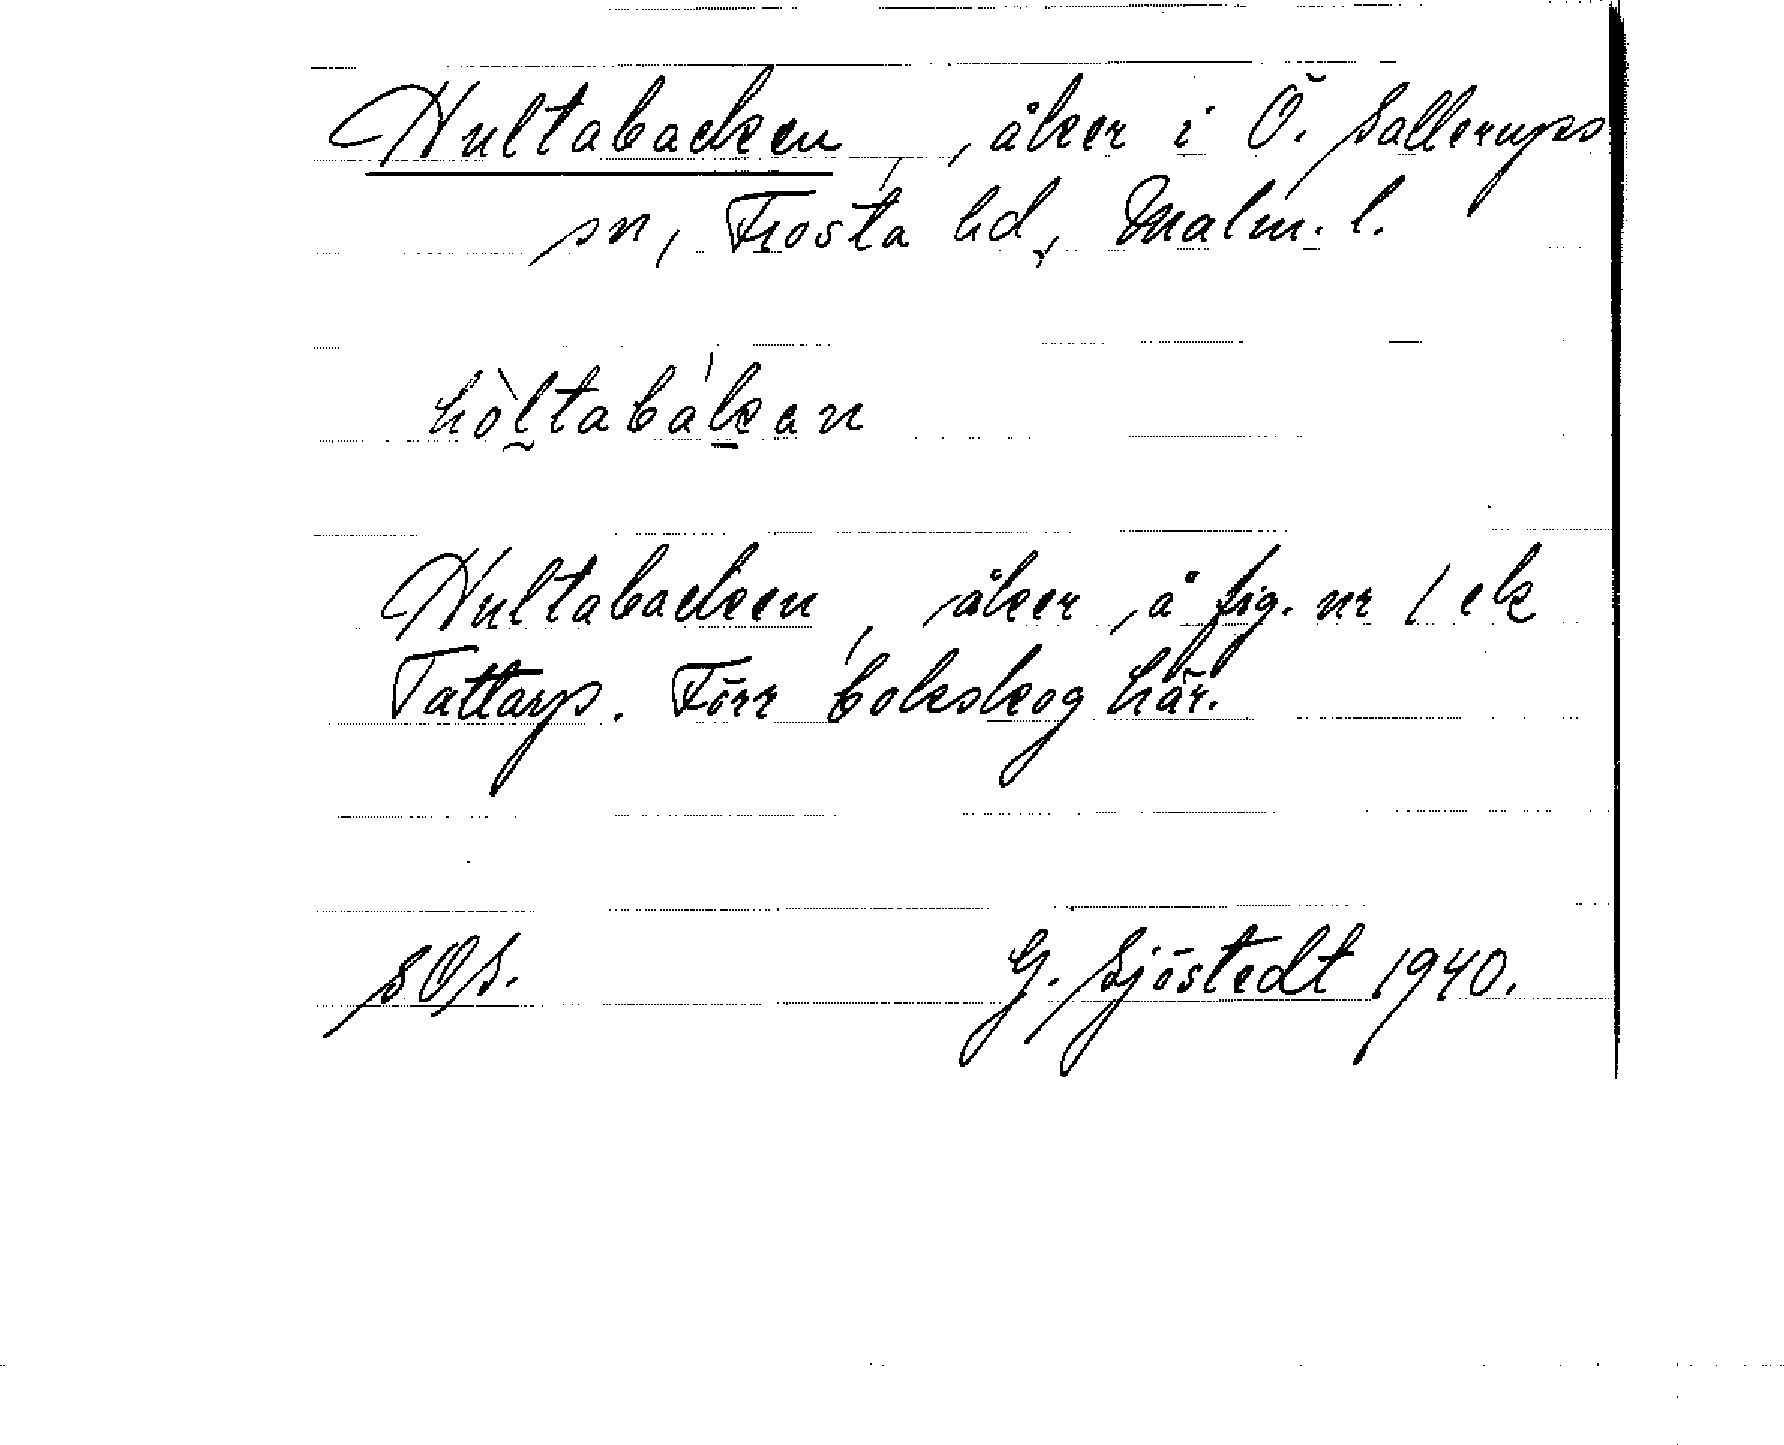 Hultabacken, åker i Ö. Sallerups
sn, Frosta hd, Malm. l.
hòltabákan
Hultabacken, åker å fig. nr 1 ek
Tattarp. Förr bokskog här.
SOS.
G. Sjöstedt 1940.